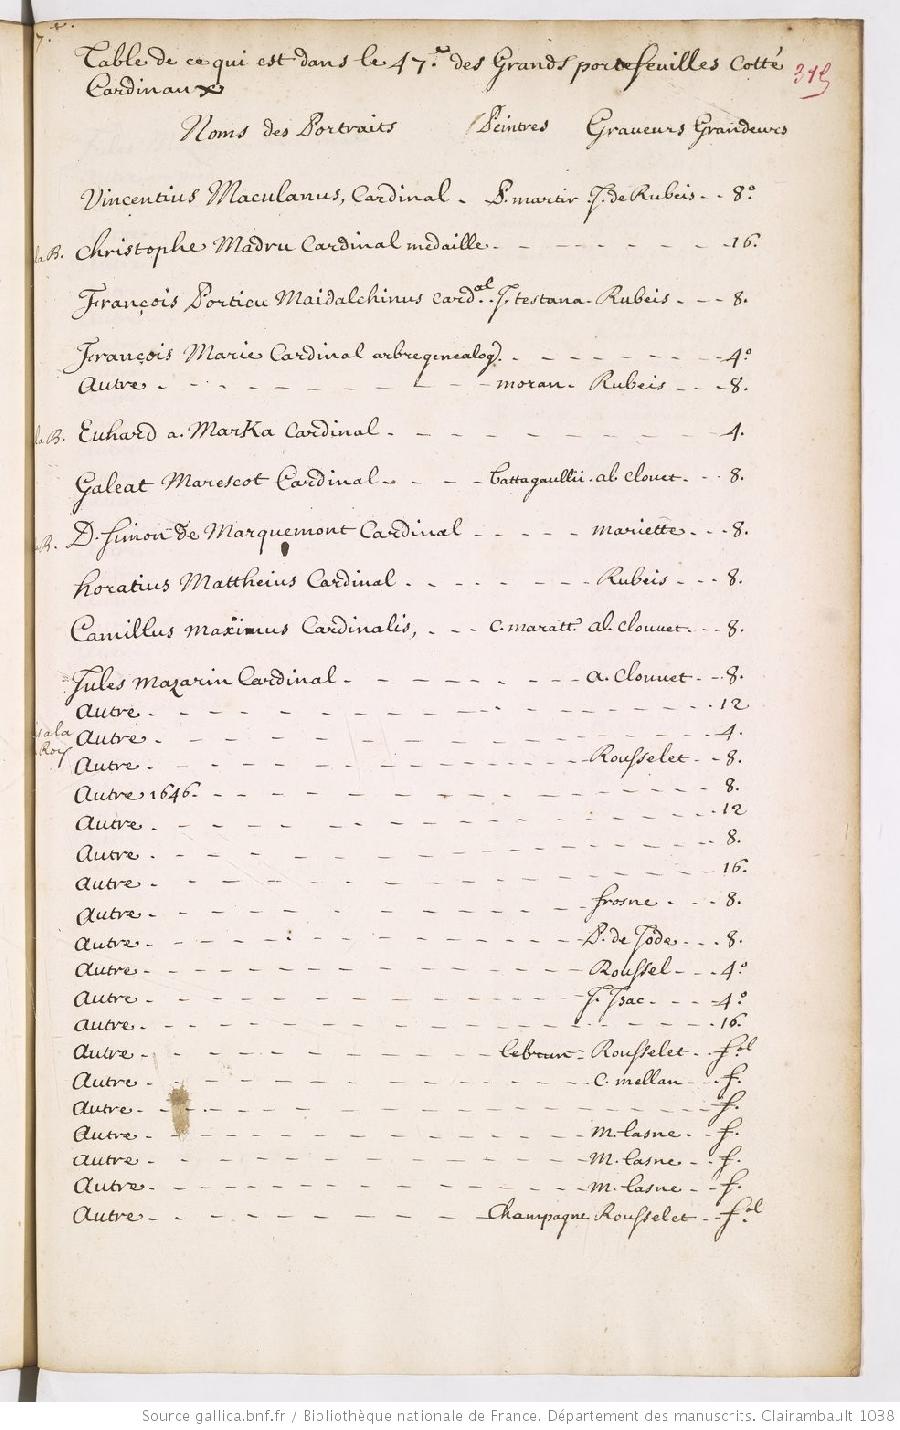 Table de ce qui est dans le 47.e des Grands portefeuilles Cotté
Cardinaux
Noms des Portraits Peintres Graveurs Grandeurs
Vincentius Maculanus, Cardinal - P. martir J. de Rubeis - - 8.°
la B. Christophe Madru Cardinal medaille - - - - - - 16.
François Porticu Maidalchinus card.al J. testana - Rubeis - - - 8.
François Marie Cardinal arbregenealog. - - - - - - 4.°
Autre - - - - - - moran - Rubeis - - - 8.
la B. Euhard a. Marka Cardinal - - - - - - 4.
Galeat Marescot Cardinal - - - battagaullii. al. Clouet - - - 8.
B. D. Simon de Marquemont Cardinal - - - - - mariette - - - 8.
horatius Mattheius Cardinal - - - - - - Rubeis - - - 8.
Camillus maximus Cardinalis, - - - C. maratt. al. Clouuet - - - 8.
Jules mazarin Cardinal - - - - - - a. Clouuet - - 8.
Autre - - - - - - 12
a la Autre - - - - - - 4.
Roy Autre - - - - - - Rousselet - - 8.
Autre 1646. - - - - - - 8.
Autre - - - - - - 12
Autre - - - - - - 8.
Autre - - - - - - 16.
Autre - - - - - - frosne - - - 8.
Autre - - - - - - P. de Jode - - - 8.
Autre - - - - - - Roussel - - - 4.°
Autre - - - - - - J. Isac - - - 4.°
Autre - - - - - - 16.
Autre - - - - - - lebrun - Rousselet - - f.ol
Autre - - - - - - C. mellan - - f.
Autre - - - - - - f.
Autre - - - - - - m. lasne - - f.
Autre - - - - - - m. lasne - - f.
Autre - - - - - - m. lasne - - f.
Autre - - - - - - Champagne Rousselet - - f.ol
Source gallica.bnf.fr / Bibliothèque nationale de France. Département des manuscrits. Clairambault 1038